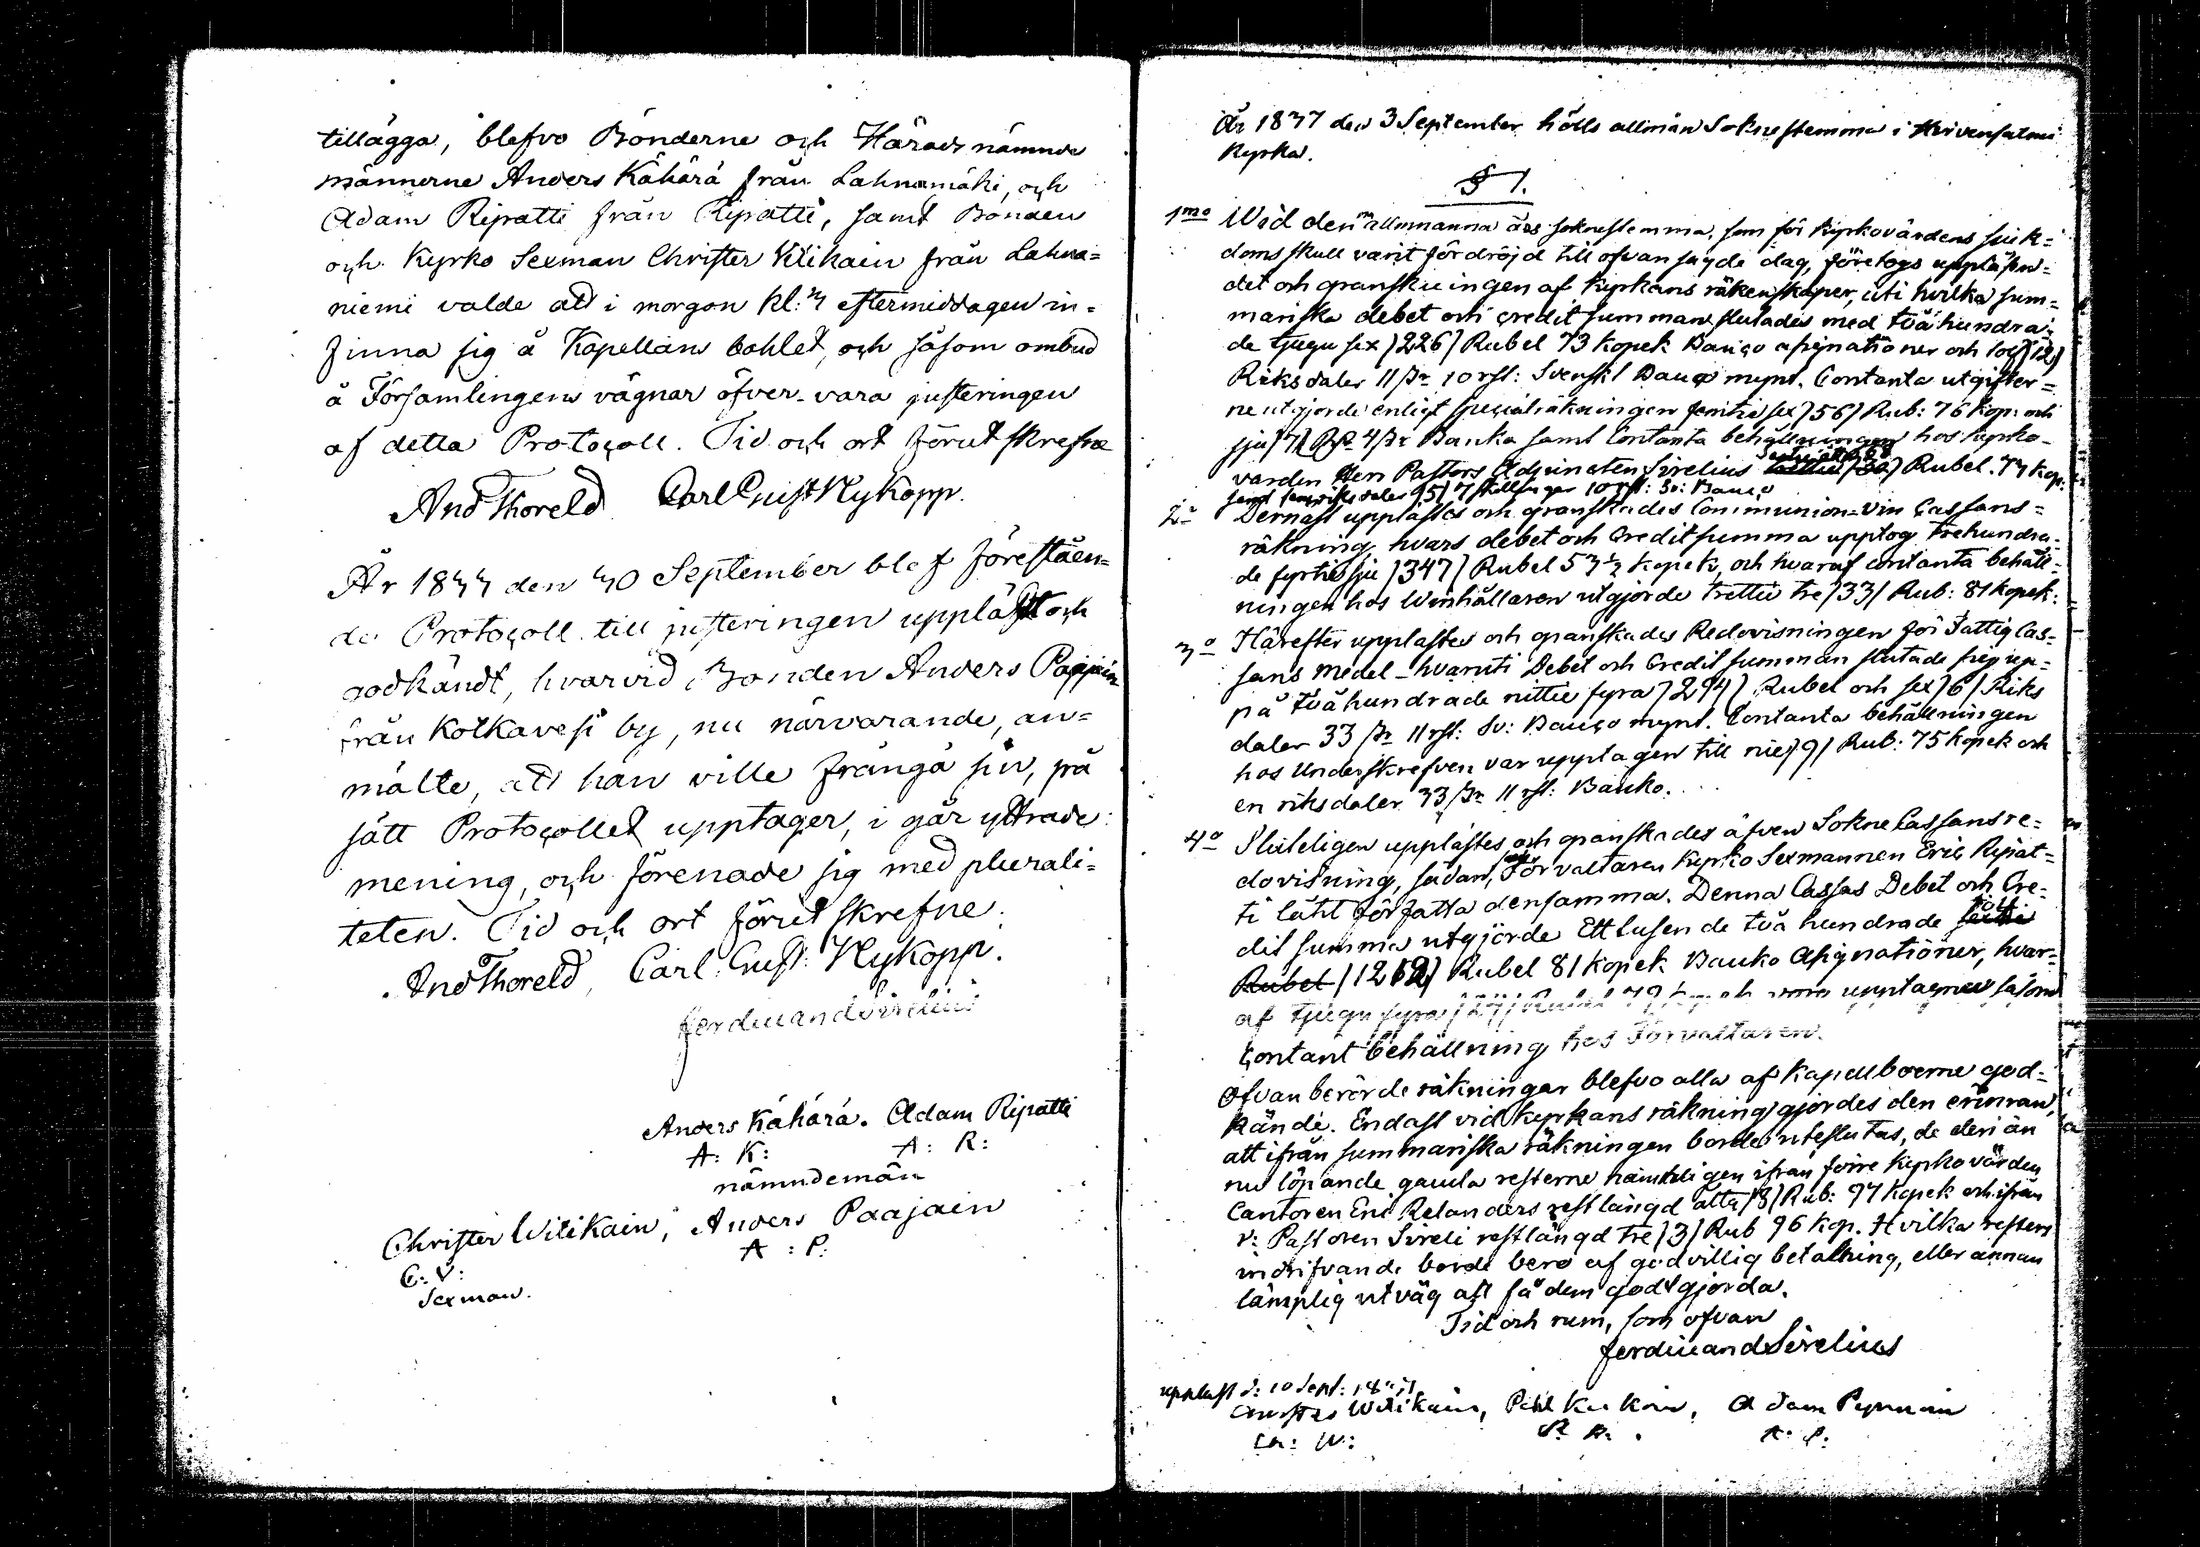 tillägga, blefvo Bönderne och Härads nämnde
männerne Anders Kähärä från Lahnamäki, och
Adam Ripatti från Ripatti, samt Bonden
och Kyrko Sexman Christer Witikain från Lahna=
niemi valde att i morgon kl: 4 eftermiddagen in=
finna sig å Kapellans bohlet, och såsom ombud
å Församlingens vägnar öfver-vara justeringen
af detta Protocoll. Tid och ort förut skrefne
And Thoreld Carl Gust Nykopp.
År 1844 den 40 September blef föreståen=
de Protocoll till justeringen uppläst och
godkändt, hvarvid Bonden Anders Paajain
från Kolkavesi by, nu närvarande, an=
mälte, att han ville frångå sin, på
sätt Protocollet upptager, i går yttrade
mening, och förenade sig med plurali=
teten. Tid och ort förut skrefne.
And Thoreld, Carl Gust: Nykopp.
Ferdinand Sirelius
Anders Kähärä. Adam Ripatti
A: K: A: R:
nämndemän
Christer Witikain, Anders Paajain
A: P:
C: V:
Sexman.
År 1847 den 3 September hölls allmän Soknestemma i Hirvensalmi
Kyrka.
§ 1.
1mo Wid den allmänna års soknestemma, som för kyrkovärdens sjuk=
doms skull varit fördröjd till ofvansagde dag, företogs uppläsan=
det och granskningen af kyrkans räkenskaper, uti hvilka sum=
mariska debet och credit summan slutades med tvåhundra=
de tjugu sex /226/ Rubel 73 kopek Banco assignationer och tolf /12/
Riksdaler 11 /3r 10 rst: Svenskt Banco mynt. Contanta utgifter=
ne utgjorde enligt specialräkningen femtie sex /56/ Rub: 76 kop: och
sju /7/ Rdr 4 /3r Banko samt Contanta behållningen hos kyrko-
värden Herr Pastors Adjuncten Sirelius Rubel. 74 kop:
samt fem riksdaler /5/ 7 skillingar 10 rst: Sv: Banco
2o Dernäst upplästes och granskades Communion-vin Cassans=
räkning, hvars debet och Credit summa upptog trehundra=
de fyrtiosju /347/ Rubel 5 3/4 kopek, och hvaraf contanta behåll=
ningen hos Winhållaren utgjorde trettie tre /33/ Rub: 81 kopek:
3o Härefter upplästes och granskades Redovisningen för Fattig Cas=
sans medel - hvaruti Debet och Credit summan slutade sig up=
på två hundrade nittie fyra /294/ Rubel och sex /6/ Riks
daler 33 /3r 11 rst: Sv: Banco mynt. Contanta behållningen
hos Underskrefven var upptagen till nie /9/ Rub: 75 kopek och
en riksdaler 33 /3r 11 rst: Banko.
4o Sluteligen upplästes och granskades äfven Sokne Cassans re=
dovisning, sådan, Förvaltaren Kyrko Sexmannen Eric Ripat=
ti låtit författa densamma. Denna Cassas Debet och Cre=
dit summa utgjorde Ett tusende två hundrade tolf
Rubel /1212/ Rubel 81 kopek Banko Assignationer, hvar=
af tjugu fyra /24/ Rubel 79 kopek voro upptagne såsom
Contant behållning hos Förvaltaren.
Ofvanberörde räkningar blefvo alla af kapellboerne god=
kände. Endast vid kyrkans räkning gjordes den erinran,
att ifrån summariska räkningen borde uteslutas, de deri än
nu löpande gamla resterne nämnligen ifrån förre Kyrkovärden
Cantoren Eric Relanders restlängd åtta /8/ Rub: 97 kopek och ifrån
v: Pastoren Sireli restlängd tre /3/ Rub 96 kop. Hvilka resters
indrifvande borde bero af godvillig betalning, eller annan
lämplig utväg att få dem godtgjorda.
Tid och rum, som ofvan
Ferdinand Sirelius
uppläst d: 10 Sept: 1847
Christer Witikain, Pål Kukoin, Adam Pynnöin
Ch: W: P. K: A: P: